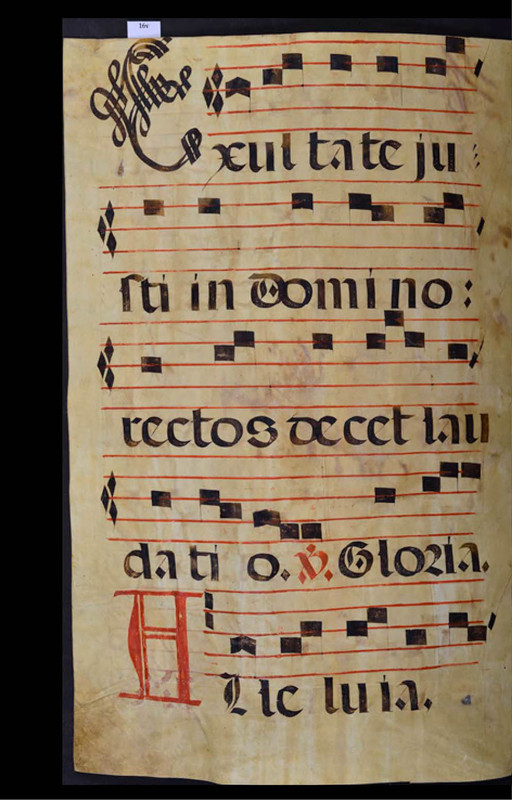 16v
Exul ta te ju :
sti in Domi no :
rectos decet lau
da ti o. V. Gloria.
Alle lu ia.